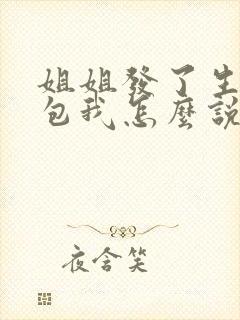 姐姐發了生
包我怎麼說
夜含笑